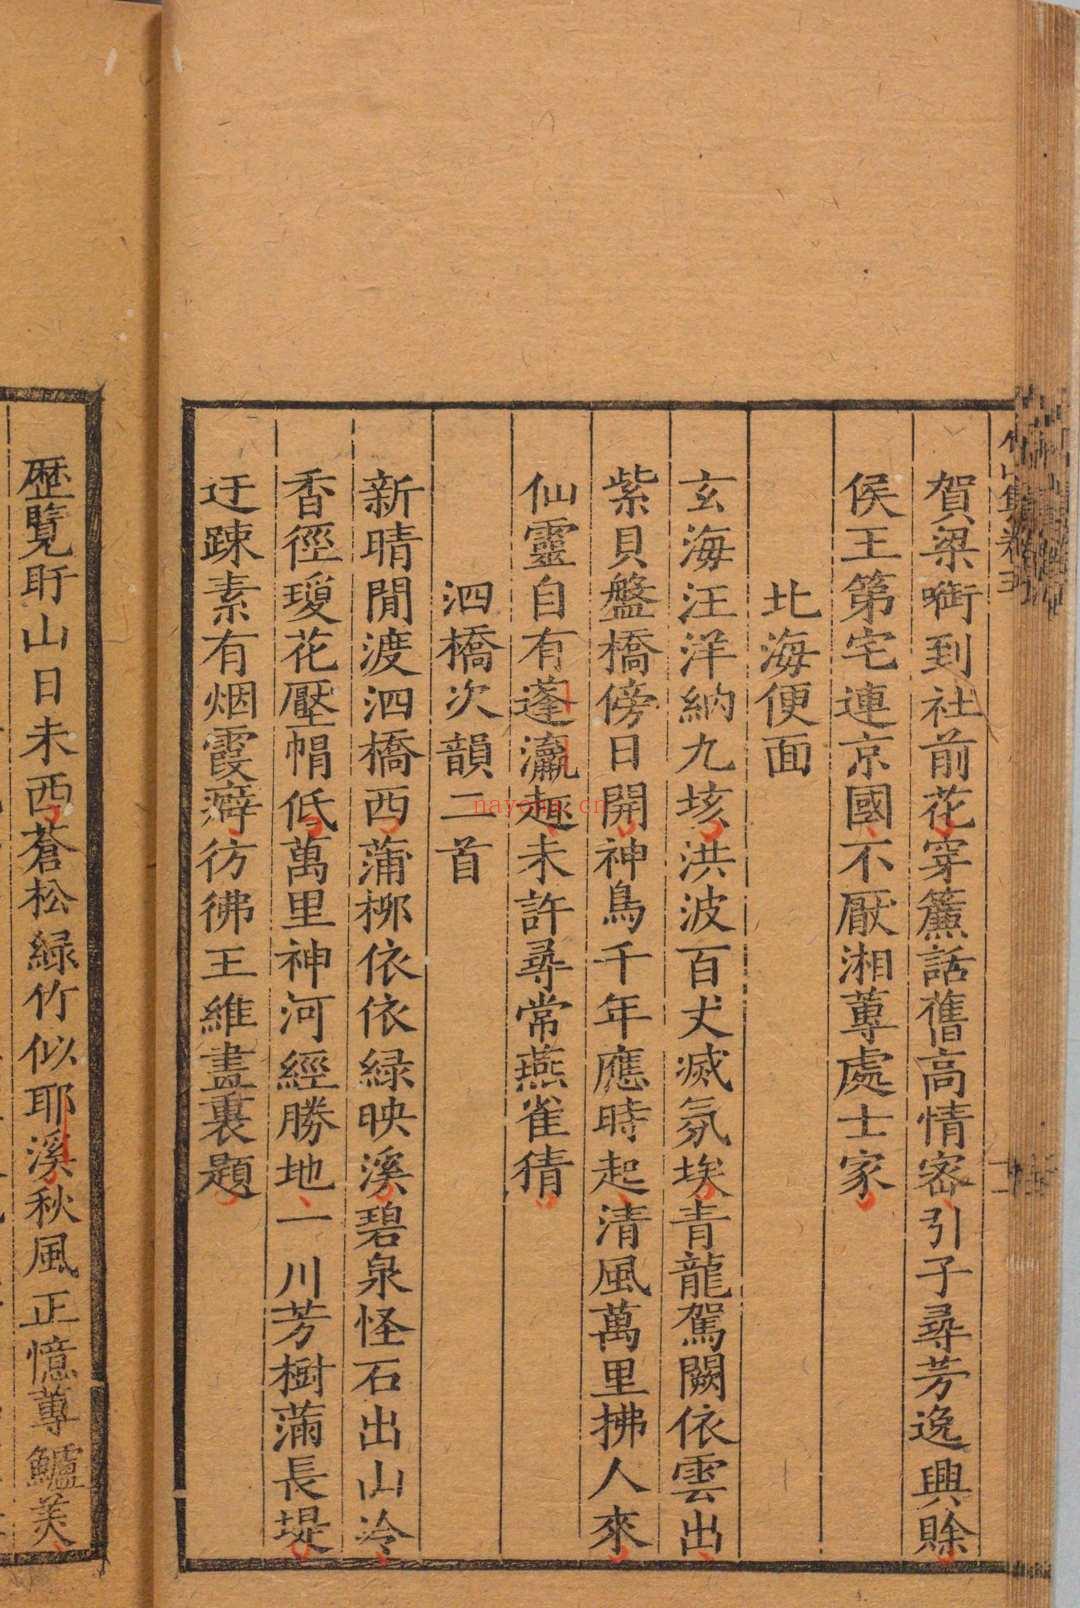 竹山集卷五
賀梁啣到社前花穿簾話舊高情密引子尋芳逸興賒
侯王第宅連京國不厭湘蓴處士家
北海便面
玄海汪洋納九垓洪波百丈滅氛埃青龍駕闕依雲出
紫貝盤橋傍日開神鳥千年應時起清風萬里拂人來
仙靈自有蓬瀛趣未許尋常燕雀猜
泗橋次韻二首
新晴閒渡泗橋西蒲柳依依緑映溪碧泉怪石出山冷
香徑瓊花壓帽低萬里神河經勝地一川芳樹滿長堤
迂踈素有烟霞癖彷彿王維畫裏題
歴覽盱山日未西蒼松緑竹似耶溪秋風正憶蓴鱸美
nayona.cn